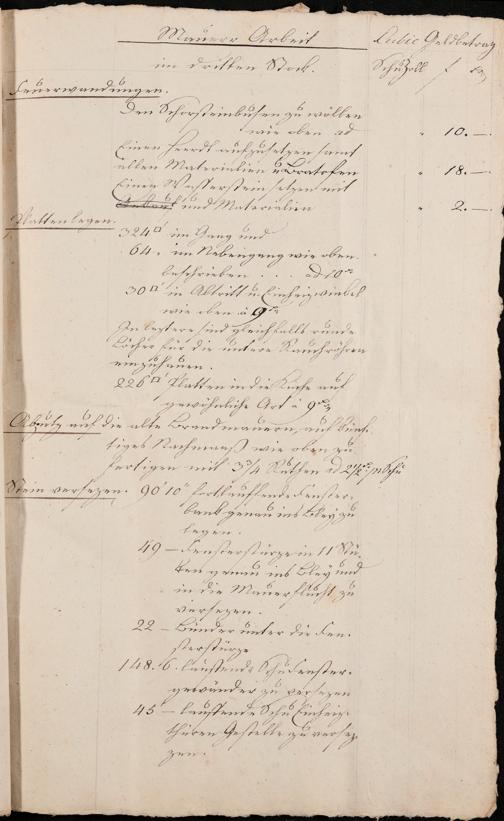 Maurer Arbeit
Cubic Geldbetrag
im dritten Stock.
Schu Zoll f xr
Feuerwandungen.
Den Schorsteinbusen zu wölben
wie oben ad " 10.—.
Einen Heerdt aufzusetzen samt
allen Materialien u Bratofen " 18.—.
Einen Wasserstein setzen mit
und Materialien " 2.—.
Plattenlegen.
324□' im Gang und
64 " im Nebengang wie oben
beschrieben . . . ad 10xr
30□' in Abtritt u. Einheizwinkel
wie oben à 9xr
In leztere sind gleichfalls runde
Löcher für die untere Rauchröhren
einzuhauen.
226□' Platten in die Küche auf
gewöhnliche Art à 9xr
Abputz auf die alte Brandmauern, auf künf-
tiges Nachmaaß wie oben zu
fertigen mit 3 3/4 Ruthen ad 2 1/2 xr pr Schu
Stein versezen. 90' 10" fortlauffende Fenster-
bank genau ins Bley zu
legen.
49 — Fensterstürze in 11 Stü-
ken genau ins Bley und
in die Mauerflucht zu
versezen.
22 — Bänder unter die Fen-
sterstürze
148. 6. lauffende Schu Fenster-
gewänder zu versezen
45 — lauffende Schu Einheiz-
thüren Gestelle zu verse-
zen.